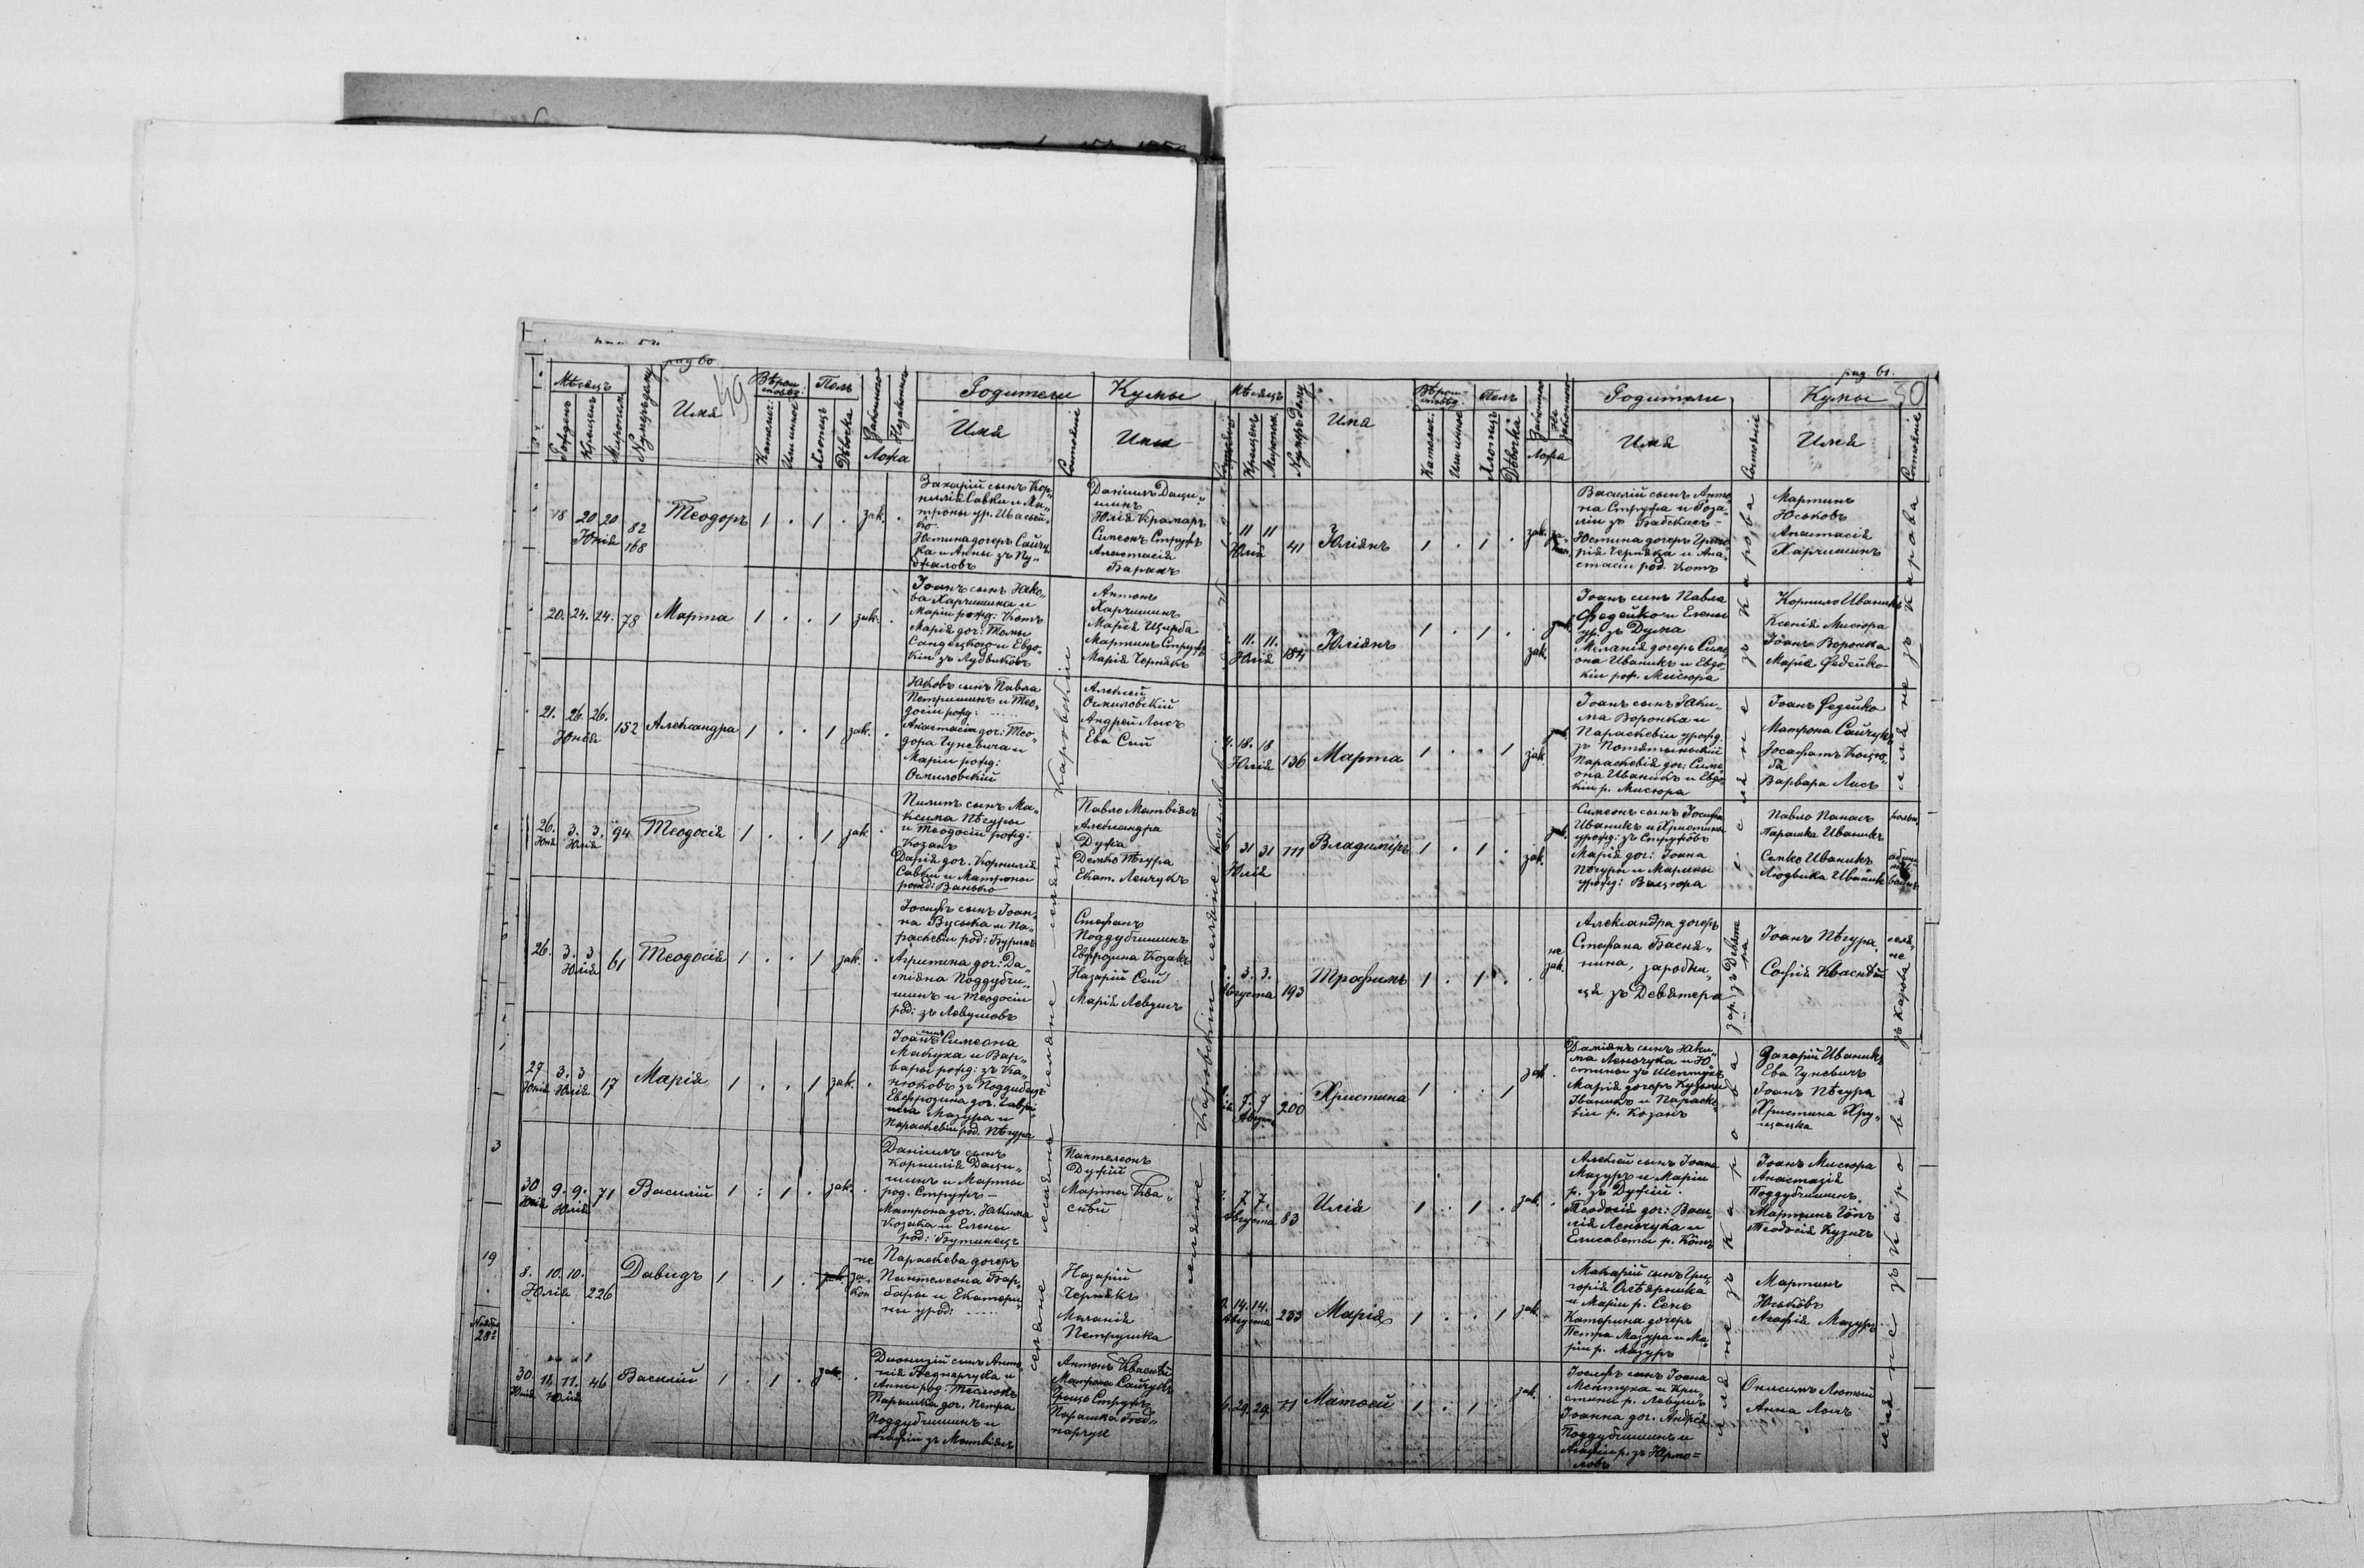 pag 60.
49
Мѣсяць
Рожденъ
Крещенъ
Миропом.
Нумеръ дому
Имя
Вѣроисповѣд.
Католич.
Или иное
Полъ
Хлопецъ
Дѣвочка
Законного
Незаконного
Ложа
Родители
Имя
Состояніе
Кумы
Имя
18 20 20
Юнія
82
168
Теодоръ
1 . 1 . зак. .
Захарій сынъ Кор-
нилія Савки и Ма-
троны ур. Ивасый-
ко
Юстина дочерь Сайчу-
ка и Анны зъ Пу-
Даніилъ Даци-
шинъ
Юлія Крамаръ
Симеонъ Струфъ
Анастасія
Баранъ
20. 24. 24. 78
Марта
1 . . 1 зак. .
Іоанъ сынъ Яко-
ва Харчишина и
Маріи рожд: Котъ
Марія доч: Томы
Сандецкого и Евдо-
кіи зъ Лудвиковъ
Антонъ
Харчишинъ
Марія Щирба
Мартинъ Струфъ
Марія Чернякъ
21. 26. 26.
Юнія
152
Александра
1 . . 1 зак. .
Яковъ сынъ Павла
Петришинъ и Тео-
досіи рожд: .....
Анастасія доч: Тео-
дора Гуневича и
Маріи рожд:
Огниловскій
Алексей
Огниловскій
Андрей Лысъ
Ева Сий
26. 3. 3.
Юнія Юлія
94
Теодосія
1 . . 1 зак. .
Пилипъ сынъ Ма-
ксима Пѣгуры
и Теодосіи рожд:
Козакъ
Дарія доч. Корнилія
Савки и Матроны
рожд: Ванько
Павло Матвіевъ
Александра
Дужа
Демко Пѣгура
Екат. Ленчукъ
26. 3. 3.
Юлія
61
Теодосія
1 . . 1 зак. .
Іосифъ сынъ Іоан-
на Бусъка и Па-
раскевіи род: Буринъ
Агрипина доч: Да-
міяна Поддубчи-
шинъ и Теодосіи
род: зъ Левушовъ
Стефанъ
Поддубчишинъ
Евфрозина Козакъ
Назарій Сен
Марія Левушъ
27 3. 3
Юнія Юлія
17
Марія
1 . . 1 зак. .
Іоанъ сынъ Симеона
Макуха и Вар-
вары рожд: зъ Ка-
нюковъ зъ Поддубецъ
Евфрозина доч. Гаврі-
ила Мазура и
Параскевіи род. Пѣгура
30 9. 9.
Юнія Юлія
71
Василій
1 : 1 . зак. .
Даніилъ сынъ
Корнилія Даци-
шинъ и Марты
род. Струфъ —
Матрона доч. Якима
Козака и Елены
род: Бутинецъ
Пантелеонъ
Дужій
Марта Ква-
сній
8. 10. 10.
Юлія
226
Давидъ
1 . 1 . зак. не закон
Параскева дочерь
Пантелеона Бар-
бары и Екатери-
ны урод: .....
Назарій
Чернякъ
Меланія
Петрушка
30. 11. 11.
Юнія Юлія
46
Василій
1 . 1 . зак. .
Дионизій сынъ Анто-
нія Беднарчука и
Анны род: Теслюкъ
Парашка доч. Петра
Поддубчишинъ и
Агафіи зъ Матвіевъ
Антонъ Кваснѣй
Матрона Сайчукъ
Гриць Струфъ
Парашка Бед-
нарчук
селяне Каровскіи
3
19
Ноября
28
pag. 61.
50
Мѣсяць
Крещенъ
Миропом.
Нумеръ дому
Имя
Вѣроисповѣд.
Католич.
Или иное
Полъ
Хлопецъ
Дѣвочка
Законного
Незаконного
Ложа
Родители
Имя
Состояніе
Кумы
Имя
Состояніе
11 11
Юлія
41
Юліянъ
1 . 1 . зак.
Василій сынъ Анто-
на Струфа и Роза-
ліи зъ Бабскихъ —
Юстина дочерь Григо-
рія Черняка и Ана-
стасіи род. Котъ
Мартинъ
Юськовъ
Анастасія
Харчишинъ
11. 11.
Юлія
184
Юліянъ
1 . 1 . зак.
Іоанъ синъ Павла
Федейко и Елены
ур. зъ Дума
Меланія дочерь Симе-
она Иваникъ и Евдо-
кіи рож. Мисюра
Корнило Иваникъ
Ксенія Мисюра
Іоанъ Воронка
Марія Федейко
18. 18
Юлія
136
Марта
1 . . 1 зак.
Іоанъ сынъ Яки-
ма Воронка и
Параскевіи урожд.
зъ Потятынскій
Параскевія доч: Симе-
она Иваникъ и Евдо-
кіи р. Мисюра
Іоанъ Федейко
Матрона Сайчукъ
Іосафатъ Коцю-
ба
Варвара Лисъ
31 31
Юлія
111
Владиміръ
1 . 1 . зак.
Симеонъ сынъ Іосифа
Иваникъ и Христина
урожд: зъ Струковъ
Марія доч: Іоана
Пѣгуры и Марины
урожд: Вацюра
Павло Панасъ
Парашка Иваникъ
Семко Иваникъ
Людвика Иваникъ
3. 3.
Августа
193
Трофимъ
1 . 1 . . не зак.
Александра дочерь
Стефана Басня-
нина, заробни-
ця зъ Девятера
зар. зъ Девятера
Іоанъ Пѣгура
Софія Кваснѣй
селяне
зъ Карова
7. 7
Августа
200
Христина
1 . . 1 зак .
Даміянъ сынъ Яки-
ма Ленчука и Ю-
стины зъ Шептукъ
Марія дочерь Кузьмы
Іваникъ и Параске-
віи р. Козакъ
Захарій Иваникъ
Ева Гуневичъ
Іоанъ Пѣгура
Христина Хру-
щацка
7. 7.
Августа
83
Илія
1 . 1 . зак. .
Алексей сынъ Іоана
Мазуръ и Маріи
р. зъ Дужій.
Теодосія доч: Васи-
лія Ленчука и
Елисаветы р. Котъ
Іоанъ Мисюра
Анастазія
Поддубчишинъ
Мартинъ Гѡпъ
Теодосія Кузикъ
14. 14.
Августа
233
Марія
1 . . 1 зак. .
Макарій сынъ Гри-
горія Олѣярника
и Маріи р. Сенъ
Катерина дочерь
Петра Мазура и Ма-
ріи р. Мазуръ
Мартинъ
Юськовъ
Агафія Мазуръ
6. 29. 29. 71
Матѳей
1 . 1 . зак. .
Іосифъ сынъ Іоана
Мектуха и Кри-
стины р. Левушъ
Іоанна доч. Андрея
Поддубчишинъ и
Агафіи р. зъ Юрмо-
ловъ
Онисимъ Лютый
Анна Лысъ
селяне зъ Карова